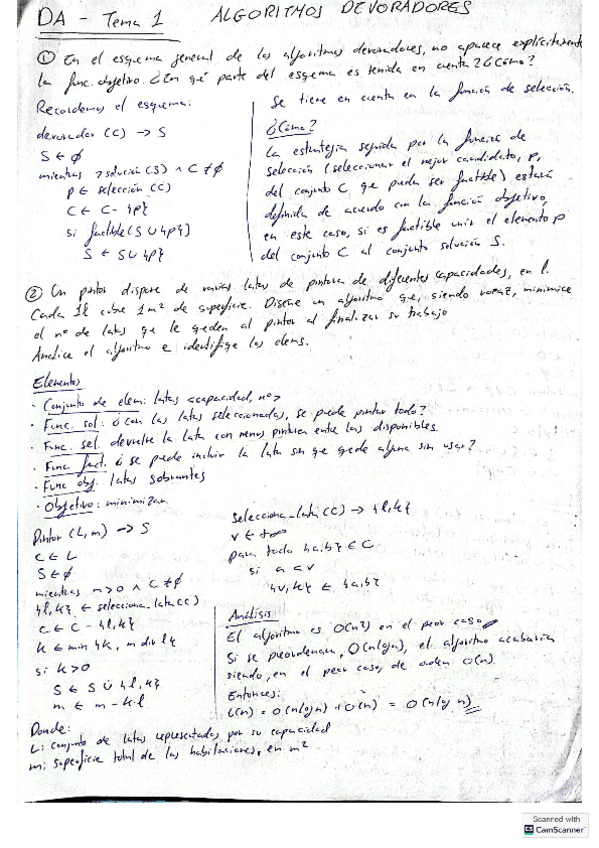 DA - Tema 1 ALGORITMOS DEVORADORES
① En el esquema general de los algoritmos devoradores, no aparece explícitamente
la func. objetivo. ¿En qué parte del esquema es tenida en cuenta? ¿Cómo?
Recordemos el esquema:
devorador (C) → S
S ← ∅
mientras ¬solución (S) ∧ C ≠ ∅
p ← selección (C)
C ← C - {p}
si factible (S ∪ {p})
S ← S ∪ {p}
Se tiene en cuenta en la función de selección.
¿Cómo?
La estrategia seguida por la función de
selección (seleccionar el mejor candidato, p,
del conjunto C, que pueda ser factible) estará
definida de acuerdo con la función objetivo,
en este caso, si es factible unir el elemento p
del conjunto C al conjunto solución S.
② Un pintor dispone de varias latas de pintura de diferentes capacidades, en l.
Cada 1l cubre 1m² de superficie. Diseñe un algoritmo que, siendo voraz, minimice
el nº de latas que le queden al pintor al finalizar su trabajo
Analice el algoritmo e identifique los elems.
Elementos
· Conjunto de elem: latas <capacidad, nº>
· Func. sol: ¿con las latas seleccionadas, se puede pintar todo?
· Func. sel. devuelve la lata con menos pintura entre las disponibles.
· Func. fact. ¿se puede incluir la lata sin que quede alguna sin usar?
· Func obj. latas sobrantes
· Objetivo: minimizar.
Pintor (L, m) → S
C ← L
S ← ∅
mientras m > 0 ∧ C ≠ ∅
{l, k} ← selecciona_lata (C)
C ← C - {l, k}
k ← min {k, m div l}
si k > 0
S ← S ∪ {l, k}
m ← m - k·l
selecciona_lata (C) → {l, k}
v ← +∞
para todo {a, b} ∈ C
si a < v
{v, k} ← {a, b}
Análisis
El algoritmo es O(n²) en el peor caso
Si se preordenaran, O(n log n), el algoritmo acabaría
siendo, en el peor caso, de orden O(n).
Entonces:
t(n) = O(n log n) + O(n) = O(n log n)
Donde:
L: conjunto de latas representadas por su capacidad
m: superficie total de las habitaciones, en m²
Scanned with
CamScanner